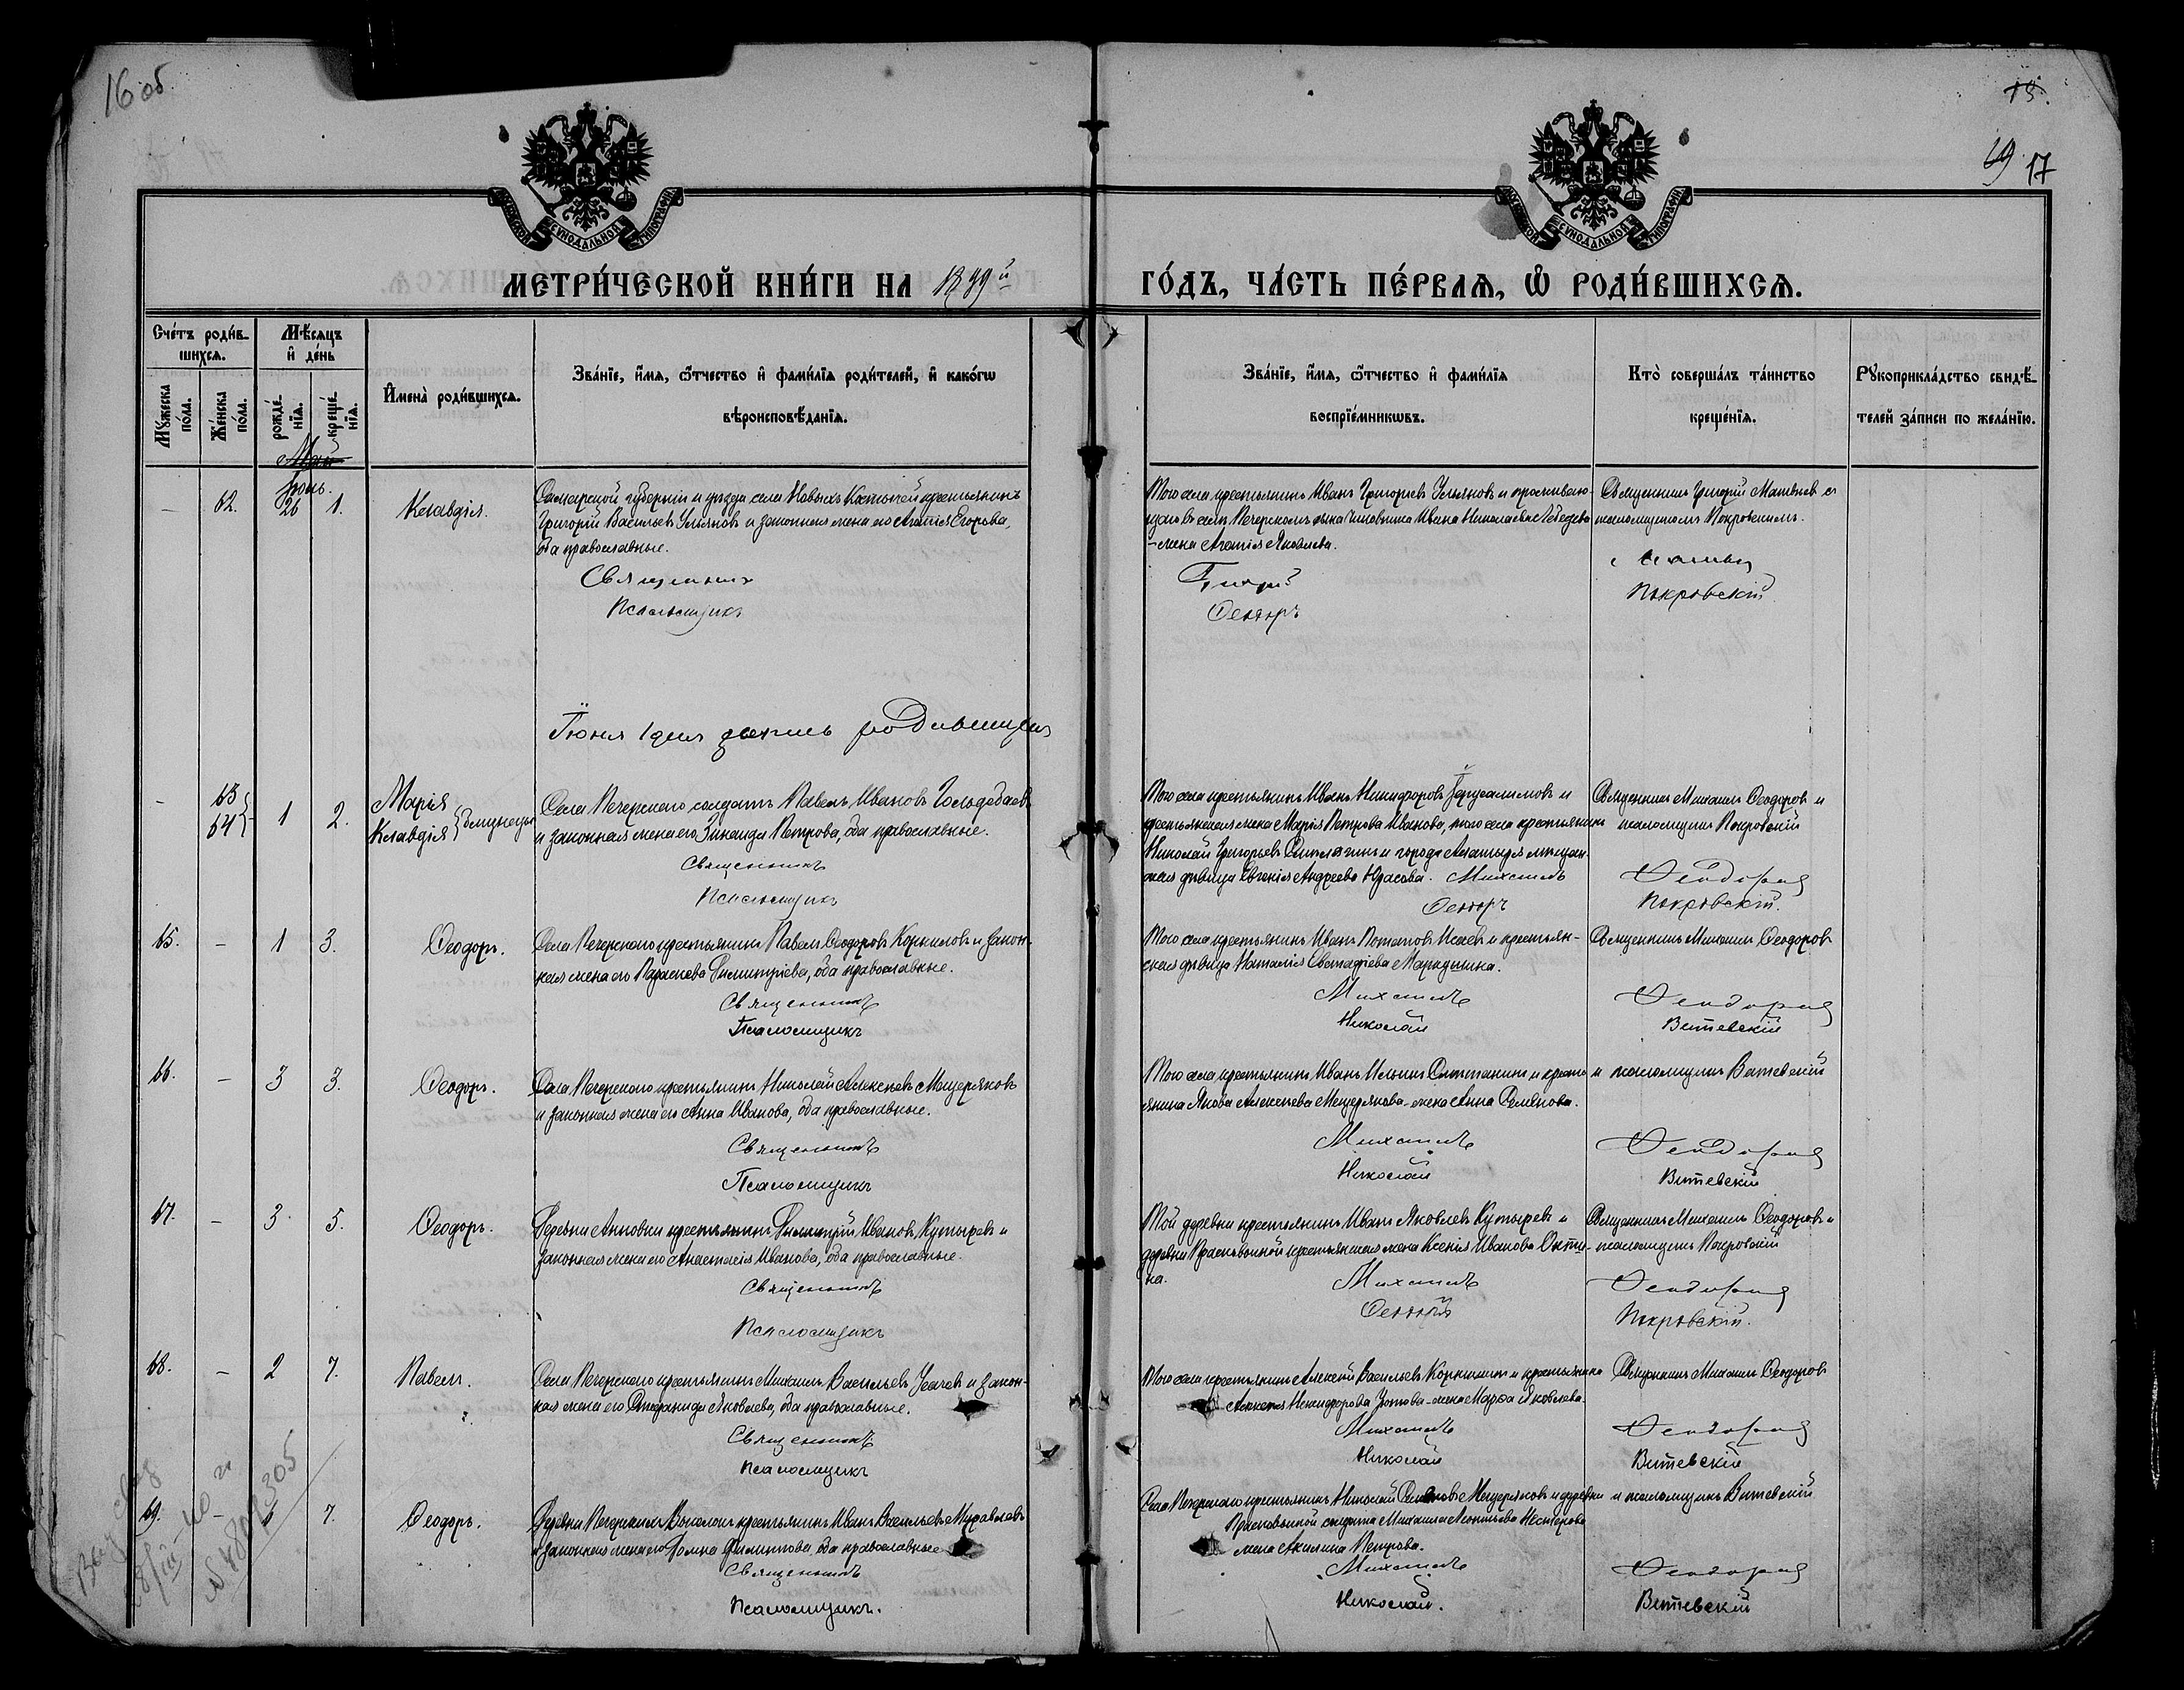 16 об.
15.
19 17
МОСКОВСКОЙ СѴНОДАЛЬНОЙ ТИПОГРАФІИ
МОСКОВСКОЙ СѴНОДАЛЬНОЙ ТИПОГРАФІИ
МЕТРИ́ЧЕСКОЙ КНИ́ГИ НА 1899й
ГО́ДЪ, ЧА́СТЬ ПЕ́РВАѦ, Ѡ҆ РОДИ́ВШИХСѦ.
Сче́тъ роди́в-
шихсѧ.
Мѣ́сѧцъ
и҆ де́нь
Му́жеска
по́ла.
Же́нска
по́ла.
рожде́-
нїѧ.
креще́-
нїѧ.
И҆мена̀ роди́вшихсѧ.
Зва́нїе, и҆́мѧ, ѻ҆́тчество и҆ фами́лїѧ роди́телей, и҆ како́гѡ
вѣроисповѣ́данїѧ.
Зва́нїе, и҆́мѧ, ѻ҆́тчество и҆ фами́лїѧ
воспрїе́мникѡвъ.
Кто̀ соверша́лъ та́инство
креще́нїѧ.
Рꙋкоприкла́дство свидѣ́-
телей за́писи по жела́нїю.
Май
Іюнь.
— 62. 26 1. Клавдія.
Самарской губерніи и уѣзда села Новыхъ Костычей крестьянинъ
Григорій Васильевъ Ульяновъ и законная жена его Агапія Егорова,
оба православные.
Священникъ
Псаломщикъ
Того села крестьянинъ Иванъ Григорьевъ Ульяновъ и проживаю-
щая въ селѣ Печерскомъ сына чиновника Ивана Николаева Лебедева
- жена Агапія Яковлева.
Григорій
Ѳеодоръ
Священникъ Григорій Матвѣевъ съ
псаломщикомъ Покровскимъ.
Покровскій
Іюня 1 дня запись родившихся
— 63 64 1 2. Марія
Клавдія близнецы
Села Печерскаго солдатъ Павелъ Ивановъ Гольдобаевъ
и законная жена его Зинаида Петрова, оба православные.
Священникъ
Псаломщикъ
Того села крестьянинъ Иванъ Никифоровъ Іерусалимовъ и
крестьянская жена Марія Петрова Иванова, того села крестьянинъ
Николай Григорьевъ и города Алатыря мѣщан-
ская дѣвица Евгенія Андреева Юрасова. Михаилъ
Ѳеодоръ
Священникъ Михаилъ Ѳеодоровъ и
псаломщикъ Покровскій
Ѳеодоровъ
Покровскій.
65. — 1 3. Ѳеодоръ.
Села Печерскаго крестьянинъ Павелъ Ѳеодоровъ Коркиловъ и закон-
ная жена его Параскева Димитріева, оба православные.
Священникъ
Псаломщикъ
Того села крестьянинъ Иванъ Потаповъ Исаевъ и крестьян-
ская дѣвица Наталія Евстафіева Мардышина.
Михаилъ
Николай
Священникъ Михаилъ Ѳеодоровъ
Ѳеодоровъ
Витевскій
66. — 3 3. Ѳеодоръ.
Села Печерскаго крестьянинъ Николай Алексѣевъ Мещеряковъ
и законная жена его Анна Иванова, оба православные.
Священникъ
Псаломщикъ
Того села крестьянинъ Иванъ Ильинъ и кресть-
янина Якова Алексѣева Мещерякова жена Анна Семенова.
Михаилъ
Николай
и псаломщикъ Витевскій
Ѳеодоровъ
Витевскій
67. — 3. 5. Ѳеодоръ.
Деревни Анновки крестьянинъ Димитрій Ивановъ Кутыревъ и
законная жена его Анастасія Иванова, оба православные.
Священникъ
Псаломщикъ
Той деревни крестьянинъ Иванъ Яковлевъ Кутыревъ и
деревни Прасковьиной крестьянская жена Ксенія Иванова
на.
Михаилъ
Ѳеодоръ
Священникъ Михаилъ Ѳеодоровъ и
псаломщикъ Покровскій
Ѳеодоровъ
Покровскій.
68. — 2 7. Павелъ.
Села Печерскаго крестьянинъ Михаилъ Васильевъ Усачевъ и закон-
ная жена его Стефанида Яковлева, оба православные.
Священникъ
Псаломщикъ
Того села крестьянинъ Алексѣй Васильевъ Коркинъ и крестьянина
Алексѣя Никифорова Зотова жена Марѳа Яковлева.
Михаилъ
Николай
Священникъ Михаилъ Ѳеодоровъ
Ѳеодоровъ
Витевскій
69. — 6 7. Ѳеодоръ.
Деревни Печерскихъ Выселокъ крестьянинъ Иванъ Васильевъ Муравлевъ
и законная жена его Домна Филиппова, оба православные
Священникъ
Псаломщикъ.
Села Печерскаго крестьянинъ Николай Семеновъ Мещеряковъ и деревни
Прасковьиной солдата Михаила Леонтьева Нестерова
жена Акилина Петрова.
Михаилъ
Николай.
и псаломщикъ Витевскій
Ѳеодоровъ
Витевскій